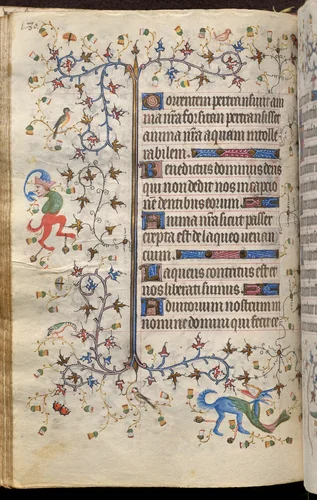 Torrentem pertransiuit ani
ma nr̃a forsitan pertransisset
anima nr̃a aquam intolle
rabilem.
Benedictus dominus deus
qui non dedit nos in captio
ne dentibus eorum.
Anima nr̃a sicut passer
erepta est de laqueo uenan
cium.
Laqueus contritus est et
nos liberati sumus.
Adiutorium nostrum in
nomine domini qui fecit ce